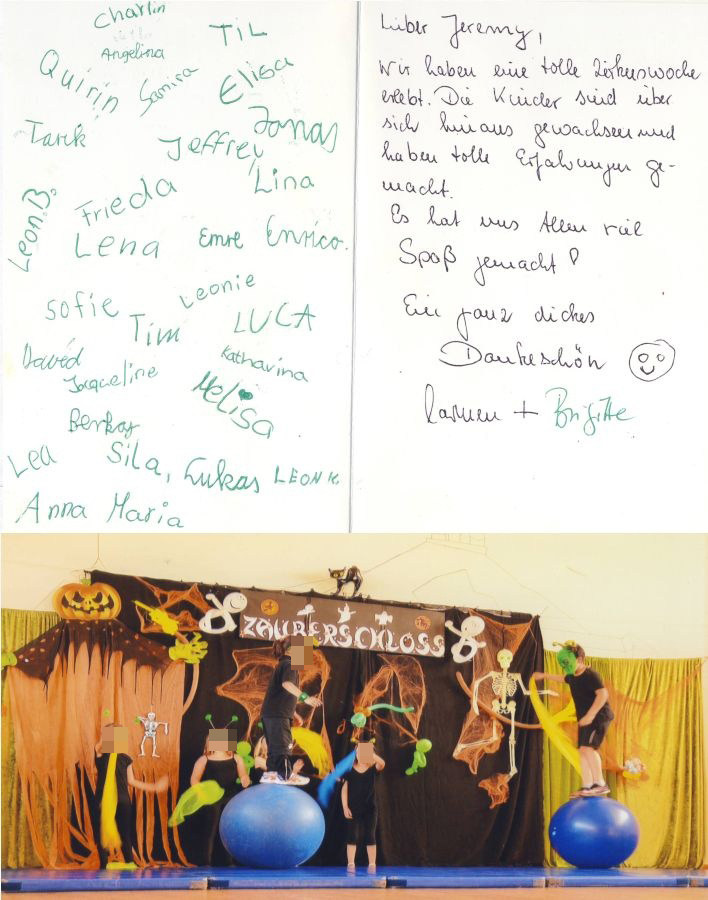 Charlin
TiL
Angelina
Quirin
Samira
Elisa
Jonas
Tarik
Jeffrey
Lina
Leon.B.
Frieda
Lena
Emre
Enrico.
Leonie
Sofie
Tim
LUCA
David
Katharina
Jacqueline
Melisa
Berkay
Lea
Sila,
Lukas
LEON K.
Anna Maria
Lieber Jeremy,
wir haben eine tolle Zirkuswoche
erlebt. Die Kinder sind über
sich hinaus gewachsen und
haben tolle Erfahrungen ge-
macht.
Es hat uns Allen viel
Spaß gemacht!
Ein ganz dickes
Dankeschön
Carmen + Brigitte
ZAUBERSCHLOSS